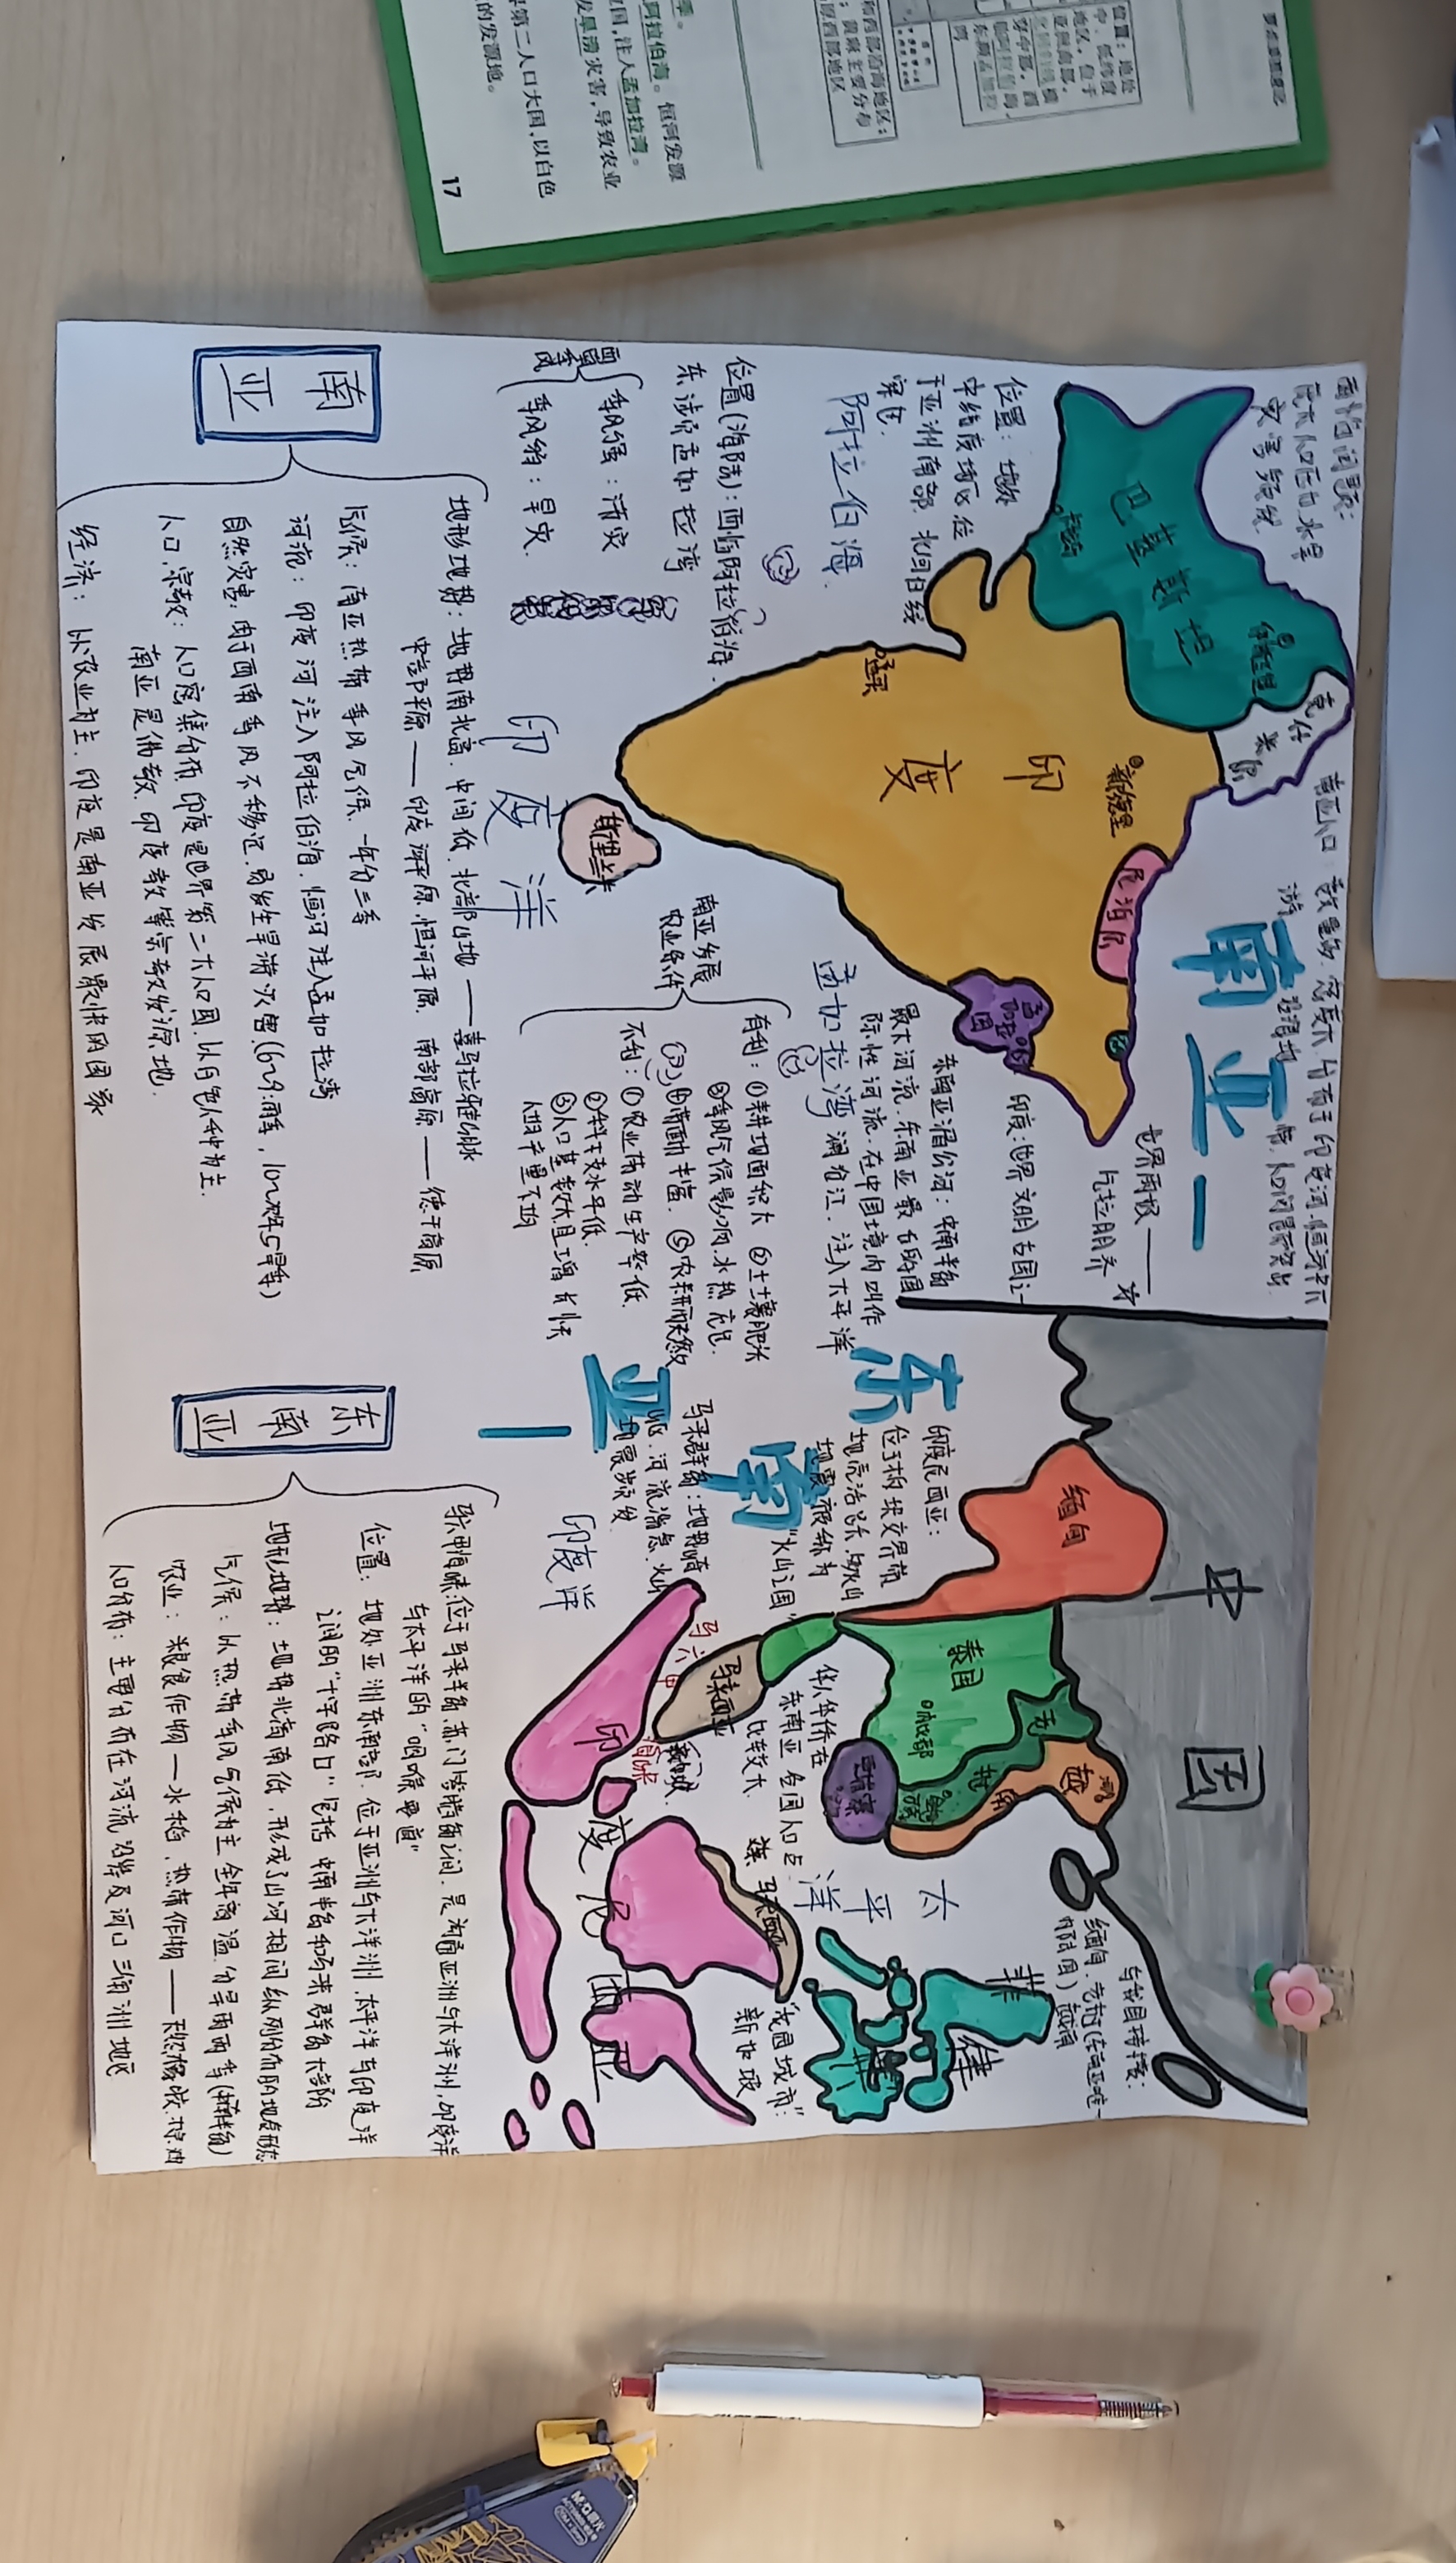 位置：地处
中、低纬度
地区，位于
亚洲南部，
北回归线横
穿中部，西
临阿拉伯海，
东濒孟加拉
湾
和西部沿海地区；
；黄麻主要分布
原西部地区
季。
阿拉伯海。恒河发源
国，注入孟加拉湾。
发旱涝灾害，导致农业
界第二人口大国，以白色
的发源地。
17
面临问题：
庞大人口压力.水旱
灾害频发
南亚人口 数量多.密度大.分布于印度河.恒河中下
游 沿海地 带.人口问题突出
南亚
克什米尔
伊斯兰堡
巴基斯坦
卡拉奇
新德里
尼泊尔
不
世界两极——
乞拉朋齐
印度
孟加拉国
印度：世界文明古国之一
孟买
位置：地处
中纬度地区.位
于亚洲南部.北回归线
穿过.
阿拉伯海
东南亚湄公河：中南半岛
最大河流.东南亚最长的国
际性河流.在中国境内叫作
澜沧江.注入太平洋
孟加拉湾
位置(海陆)：西临阿拉伯海.
东濒孟加拉湾
西南季风
季风强：涝灾
季风弱：旱灾.
斯里兰卡
印度洋
南亚发展
农业条件
有利：①耕地面积大 ②土壤肥沃
③季风气候影响.水热充足.
④劳动丰富. ⑤农耕历史悠久
不利：①农业劳动生产率低.
②科技水平低.
③人口基数大且增长快
人均产量不均
南亚
地形地势：地势南北高.中间低.北部山地——喜马拉雅山脉
中部平原——印度河平原.恒河平原. 南部高原——德干高原
气候：南亚热带季风气候.一年分三季
河流：印度河注入阿拉伯海.恒河注入孟加拉湾
自然灾害：由于西南季风不稳定.易发生旱涝灾害.(6~9:雨季，10~次年5旱季)
人口.宗教：人口密集分布.印度是世界第二大人口国.以白色人种为主.
南亚是佛教.印度教等宗教发源地.
经济：以农业为主.印度是南亚发展最快的国家
中国
与我国接壤：
缅甸.老挝(东南亚唯一
内陆国) 越南
缅甸
河内
越南
老挝
泰国
内比都
金边
柬埔寨
太平洋
菲律宾
东南亚
印度尼西亚：
位于板块交界带
地壳活跃.多火山
地震被称为
“火山之国”
华人华侨在
东南亚各国人口占
比较大.
“花园城市”：
新加坡
文莱
马来西亚
马来西亚
马六甲海峡
新加坡
马来群岛：地势崎
岖.河流湍急.火山
地震频发
印度尼西亚
印度洋
东南亚
马六甲海峡：位于马来半岛.苏门答腊岛之间.是沟通亚洲与大洋洲，印度洋
与太平洋的“咽喉要道”
位置：地处亚洲东南部.位于亚洲与大洋洲.太平洋与印度洋
之间的“十字路口”包括中南半岛和马来群岛大部分
地形地势：地势北高南低，形成了山河相间纵列分布的地表形态
气候：以热带季风气候为主 全年高温.分旱雨两季(中南半岛)
农业：粮食作物—水稻，热带作物——天然橡胶.椰油
人口分布：主要分布在河流沿岸及河口三角洲地区